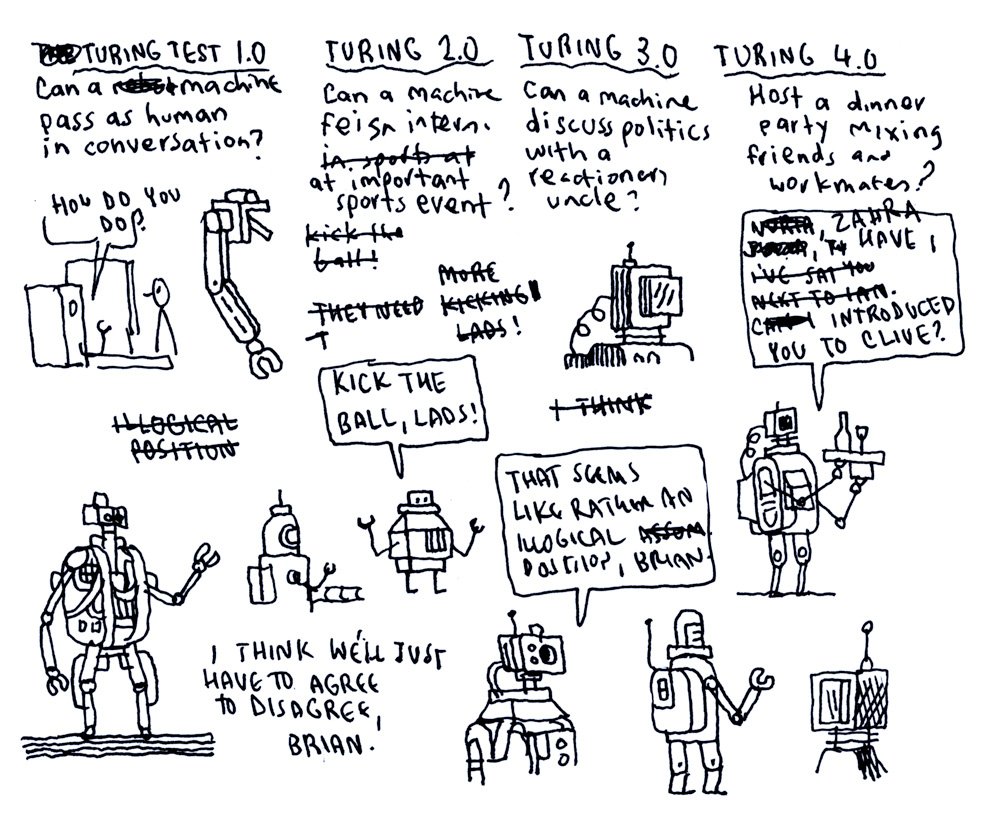 TURING TEST 1.0
Can a machine
pass as human
in conversation?
HOW DO YOU
DO?
TURING 2.0
Can a machine
feign intern.
in sports at
at important
sports event?
kick the
ball!
THEY NEED MORE
KICKING!
T LADS!
KICK THE
BALL, LADS!
TURING 3.0
Can a machine
discuss politics
with a
reactionery
uncle?
I THINK
THAT SEEMS
LIKE RATHER AN
ILLOGICAL ASSUM.
POSITION, BRIAN.
TURING 4.0
Host a dinner
party mixing
friends and
workmates?
ZAHRA
HAVE I
I'VE SAT YOU
NEXT TO IAN.
INTRODUCED
YOU TO CLIVE?
ILLOGICAL
POSITION
I THINK WE'LL JUST
HAVE TO AGREE
TO DISAGREE,
BRIAN.